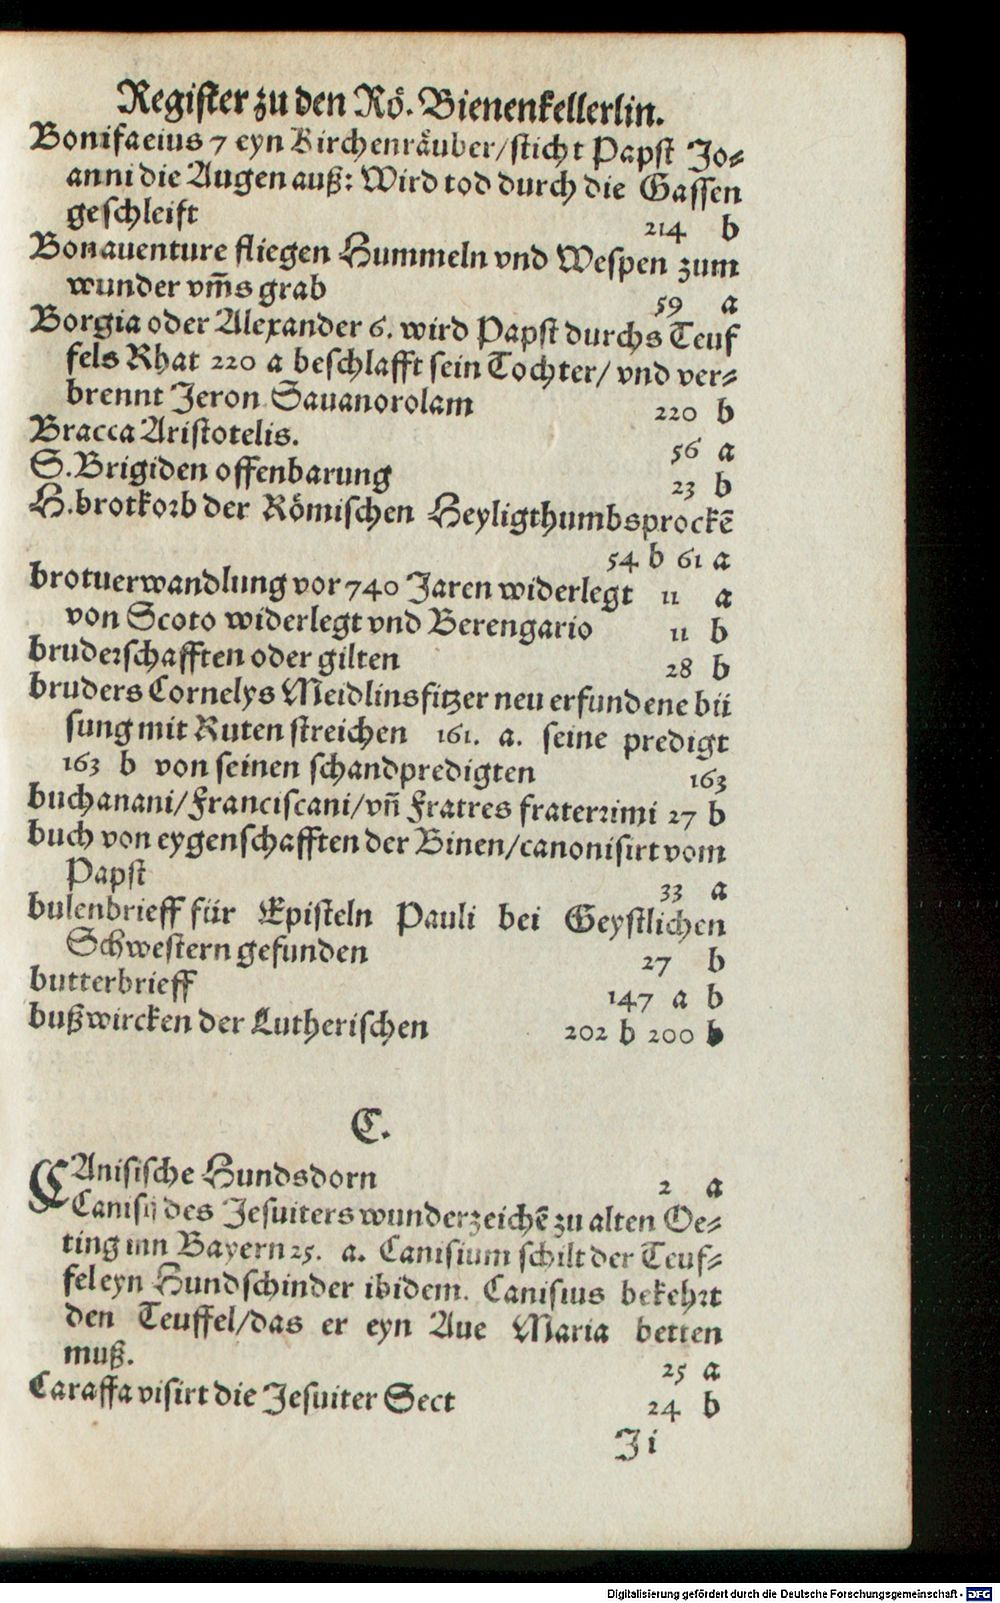 Register zu den Rö. Bienenkellerlin.
Bonifaeius 7 eyn Kirchenräuber/sticht Papst Jo-
anni die Augen auß: Wird tod durch die Gassen
geschleift 214 b
Bonauenture fliegen Hummeln vnd Wespen zum
wunder vm̃s grab 59 a
Borgia oder Alexander 6. wird Papst durchs Teuf
fels Rhat 220 a beschlafft sein Tochter/ vnd ver-
brennt Jeron Sauanorolam 220 b
Bracca Aristotelis. 56 a
S. Brigiden offenbarung 23 b
H. brotkorb der Römischen Heyligthumbsprockẽ
54 b 61 a
brotuerwandlung vor 740 Jaren widerlegt 11 a
von Scoto widerlegt vnd Berengario 11 b
bruderschafften oder gilten 28 b
bruders Cornelys Meidlinsfitzer neu erfundene bü
sung mit Ruten streichen 161. a. seine predigt
163 b von seinen schandpredigten 163
buchanani/Franciscani/vñ Fratres fraterrimi 27 b
buch von eygenschafften der Binen/canonisirt vom
Papst 33 a
bulenbrieff für Episteln Pauli bei Geystlichen
Schwestern gefunden 27 b
butterbrieff 147 a b
buß wircken der Lutherischen 202 b 200 b
C.
CAnisische Hundsdorn 2 a
Canisij des Jesuiters wunderzeichẽ zu alten Oe-
ting inn Bayern 25. a. Canisium schilt der Teuf-
fel eyn Hundschinder ibidem. Canisius bekehrt
den Teuffel/das er eyn Aue Maria betten
muß. 25 a
Caraffa visirt die Jesuiter Sect 24 b
J i
Digitalisierung gefördert durch die Deutsche Forschungsgemeinschaft - DFG